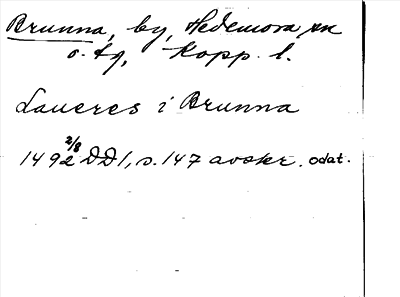 Brunna, by, Hedemora sn
o. tg, Kopp. l.
Laueres i Brunna
2/8
1492 DD1, s. 147 avskr. odat.